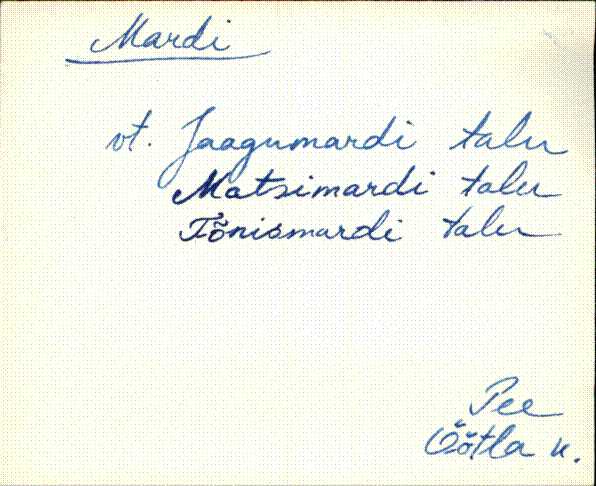 Mardi
vt. Jaagumardi talu
Matsimardi talu
Tõnismardi talu
Pee
Öötla k.